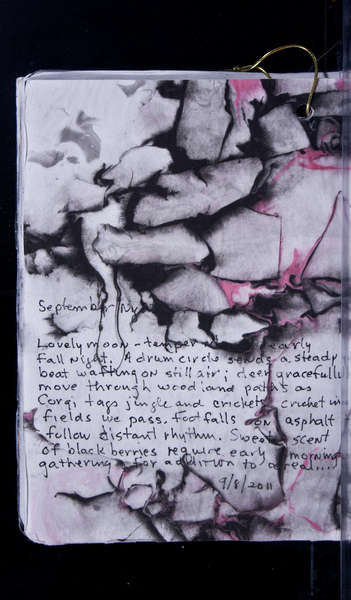 September
Lovely moon - temper early
Fall Night. A drum circle sends a steady
beat wafting on still air; deer gracefully
move through woodland paths as
Corgi tags jingle and crickets cricket in
fields we pass. Footfalls on asphalt
follow distant rhythm. Sweet scent
of blackberries require early morning
gathering for addition to cereal....
9/8/2011